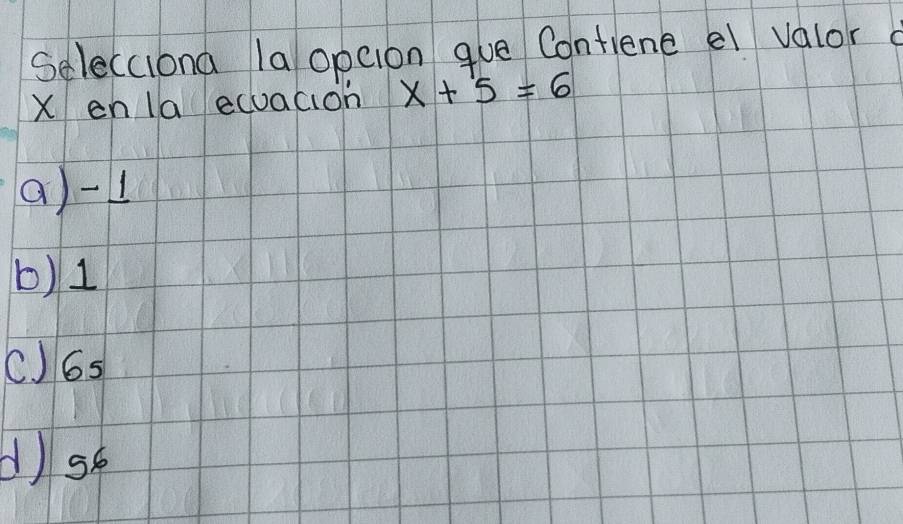 Selecciona la opcion que Contiene el valor d
X en la ecuación x + 5 = 6
a) - 1
b) 1
c) 65
d) 56